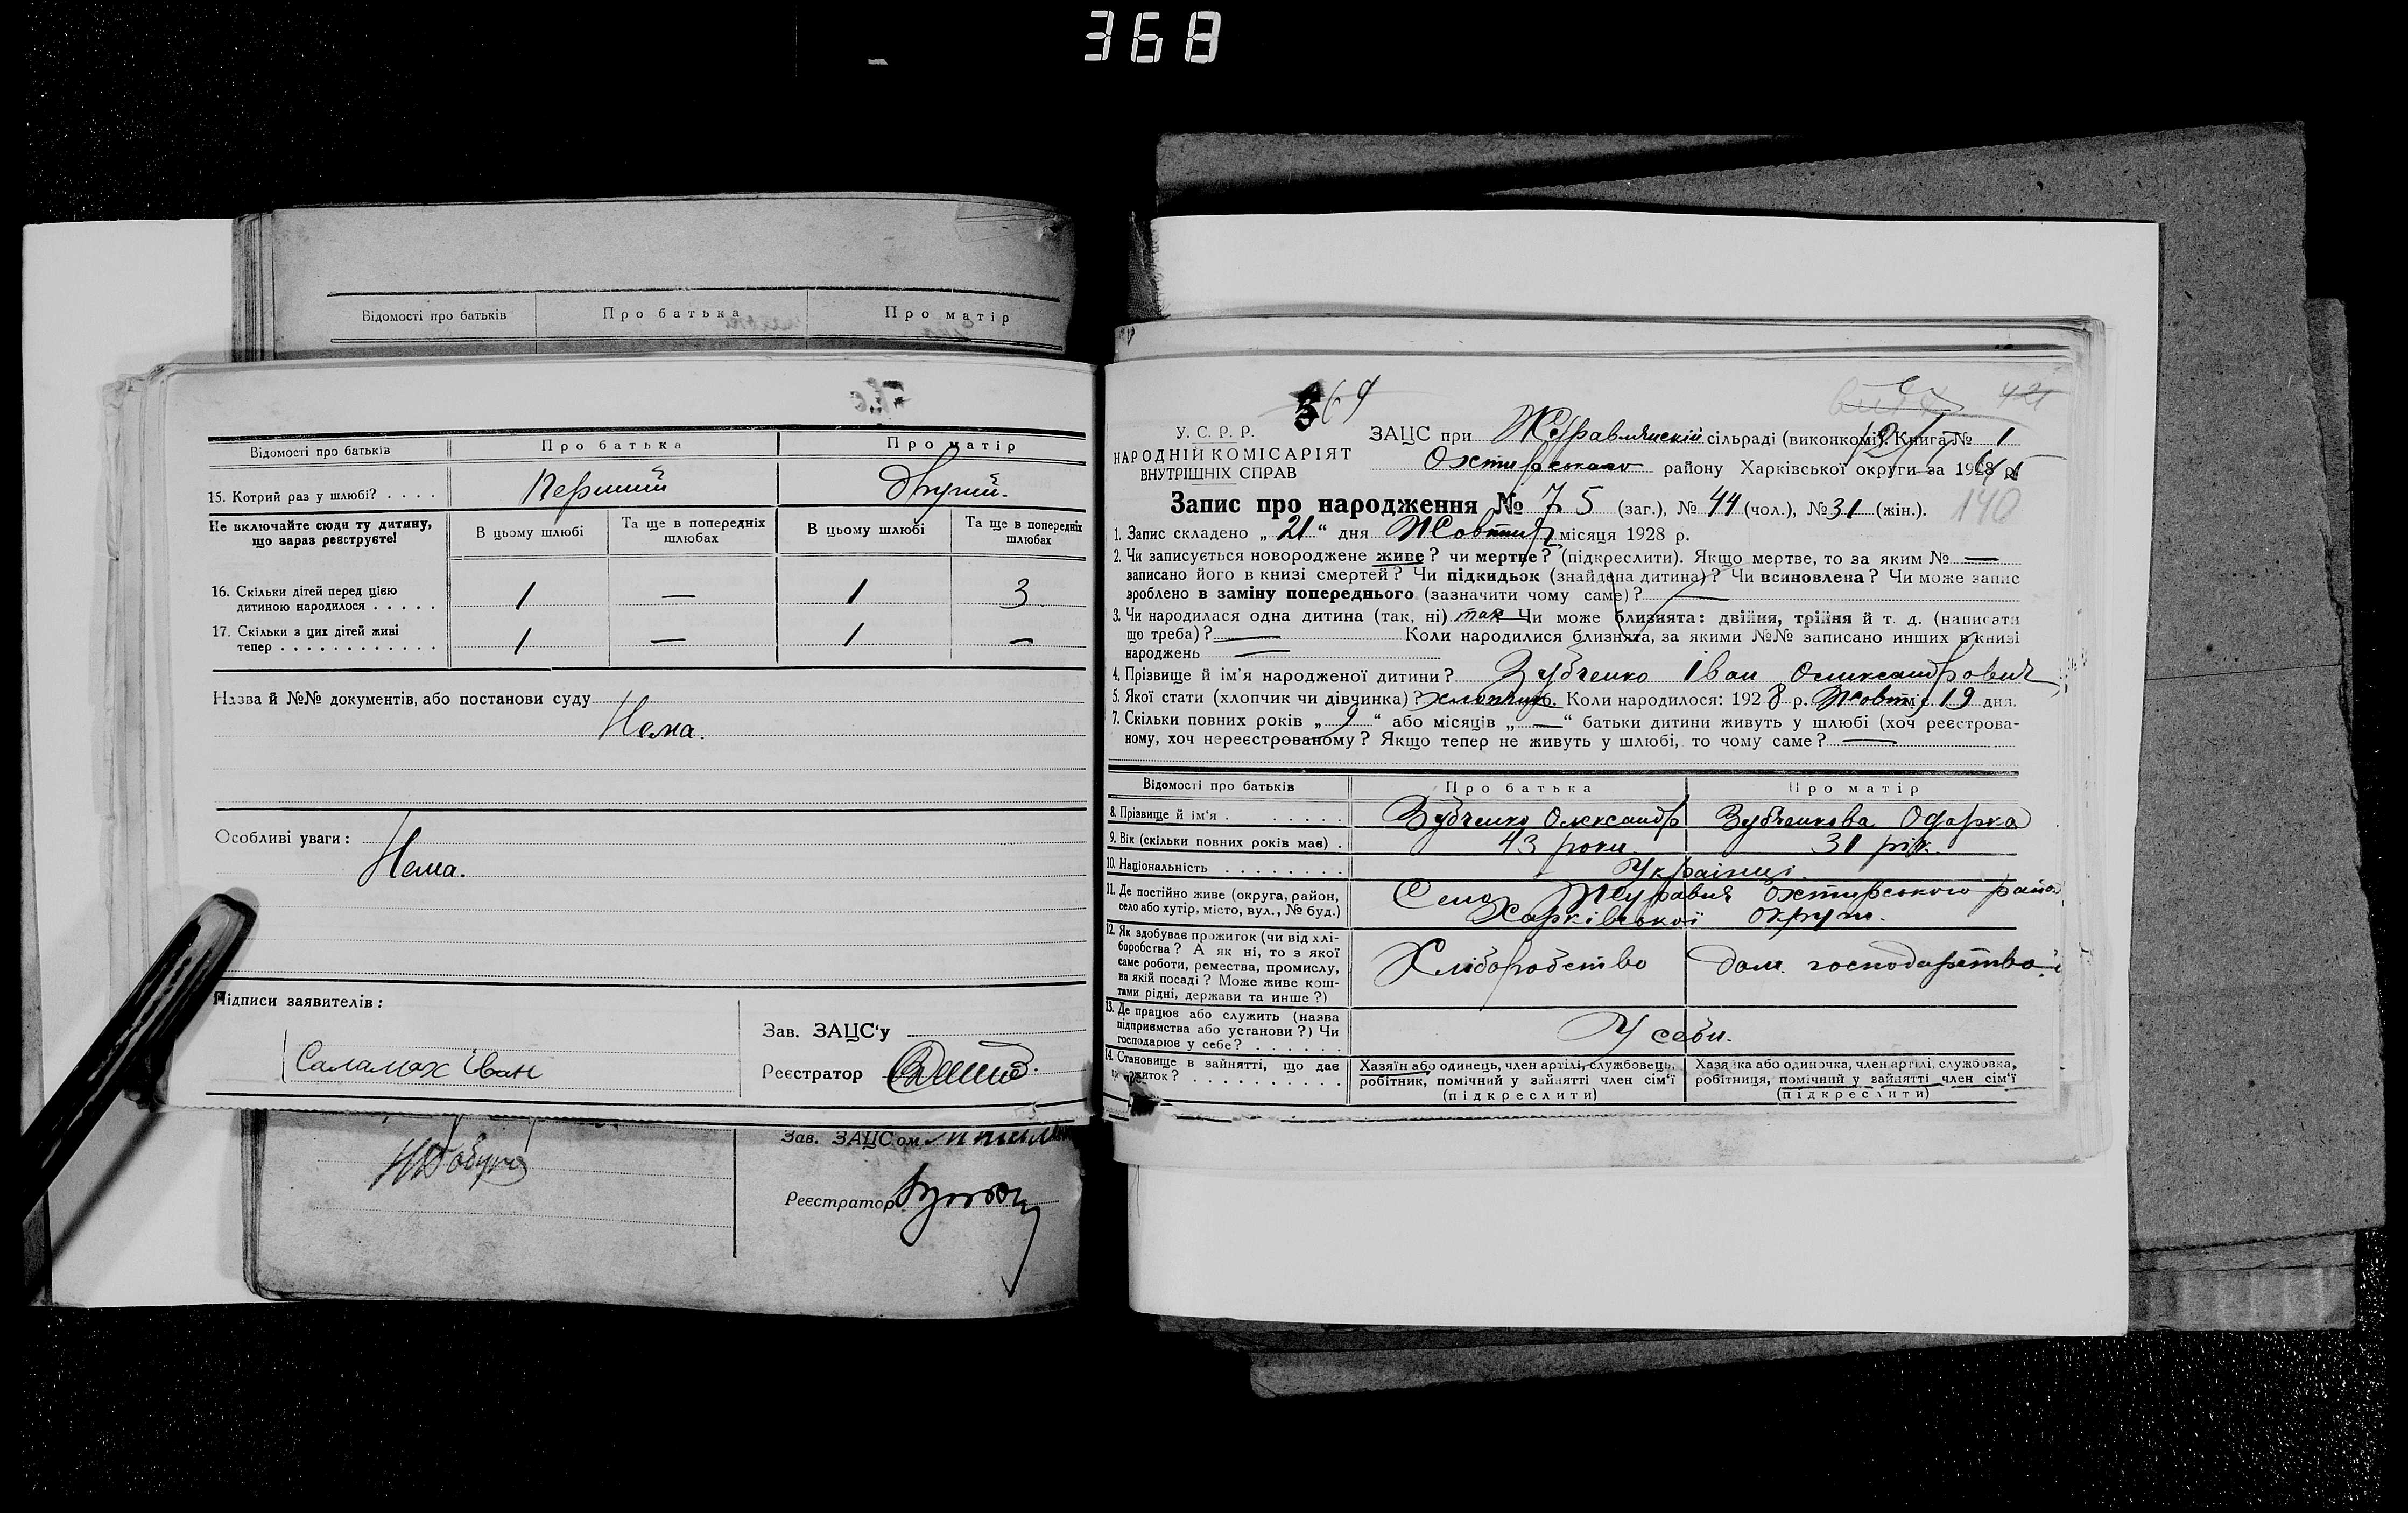 368
Відомості про батьків Про батька Про матір
Відомості про батьків Про батька Про матір
15. Котрий раз у шлюбі? . . . . Перший другий.
Не включайте сюди ту дитину, що зараз реєструєте!
В цьому шлюбі Та ще в попередніх шлюбах В цьому шлюбі Та ще в попередніх шлюбах
16. Скільки дітей перед цією
дитиною народилося . . . . . 1 — 1 3
17. Скільки з цих дітей живі
тепер . . . . . . . . . . . . 1 — 1 —
Назва й №№ документів, або постанови суду
Нема.
Особливі уваги:
Нема.
Підписи заявителів:
Зав. ЗАЦС'у
Саламах Іван
Реєстратор
Зав. ЗАЦС.ом
Реєстратор
369
У. С. Р. Р.
НАРОДНІЙ КОМІСАРІЯТ
ВНУТРІШНІХ СПРАВ
ЗАЦС при Журавлянскій сільраді (виконкомі). Книга № 1
Охтирського району Харківської округи за 1928 р.
Запис про народження № 75 (заг.), № 44 (чол.), № 31 (жін.). 140
1. Запис складено „21“ дня Жовтня місяця 1928 р.
2. Чи записується новороджене живе? чи мертве? (підкреслити). Якщо мертве, то за яким № —
записано його в книзі смертей? Чи підкидьок (знайдена дитина)? Чи всиновлена? Чи може запис
зроблено в заміну попереднього (зазначити чому саме)? —
3. Чи народилася одна дитина (так, ні) так Чи може близнята: двійня, трійня й т. д. (написати
що треба)? — Коли народилися близнята, за якими №№ записано инших в книзі
народжень —
4. Прізвище й ім'я народженої дитини? Зубченко Іван Олександрович
5. Якої стати (хлопчик чи дівчинка)? хлопчик 6. Коли народилося: 1928 р. Жовтн міс. 19 дня.
7. Скільки повних років „9“ або місяців „—“ батьки дитини живуть у шлюбі (хоч реєстрова-
ному, хоч нереєстрованому? Якщо тепер не живуть у шлюбі, то чому саме? —
Відомості про батьків Про батька Про матір
8. Прізвище й ім'я . . . . . . Зубченко Олександр Зубченкова Одарка
9. Вік (скільки повних років має) . 43 роки 31 рік.
10. Національність . . . . . . . . Українці.
11. Де постійно живе (округа, район,
село або хутір, місто, вул., № буд.)
Село Журавня Охтирського район
Харківської округи.
12. Як здобуває прожиток (чи від хлі-
боробства? А як ні, то з якої
саме роботи, ремества, промислу,
на якій посаді? Може живе кош-
тами рідні, держави та инше?)
Хліборобство дом. господарство
13. Де працює або служить (назва
підприємства або установи?) Чи
господарює у себе? . . . . . .
У себи.
14. Становище в зайнятті, що дає
прожиток? . . . . . . . . . . .
Хазяїн або одинець, член артілі, службовець,
робітник, помічний у зайнятті член сім'ї
(підкреслити)
Хазяйка або одиночка, член артілі, службовка,
робітниця, помічний у зайнятті член сім'ї
(підкреслити)